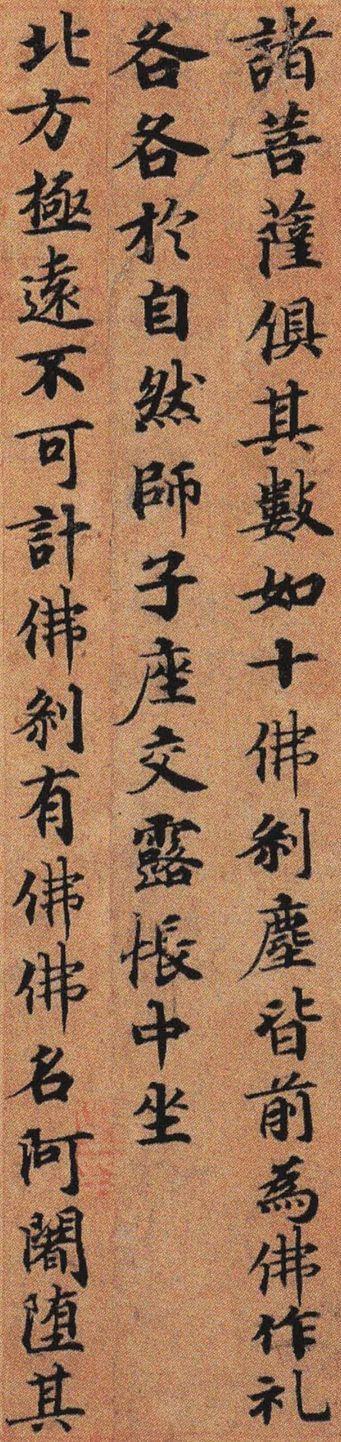 諸菩薩俱其數如十佛剎塵皆前為佛作礼
各各於自然師子座交露帳中坐
北方極遠不可計佛剎有佛佛名阿闍堕其